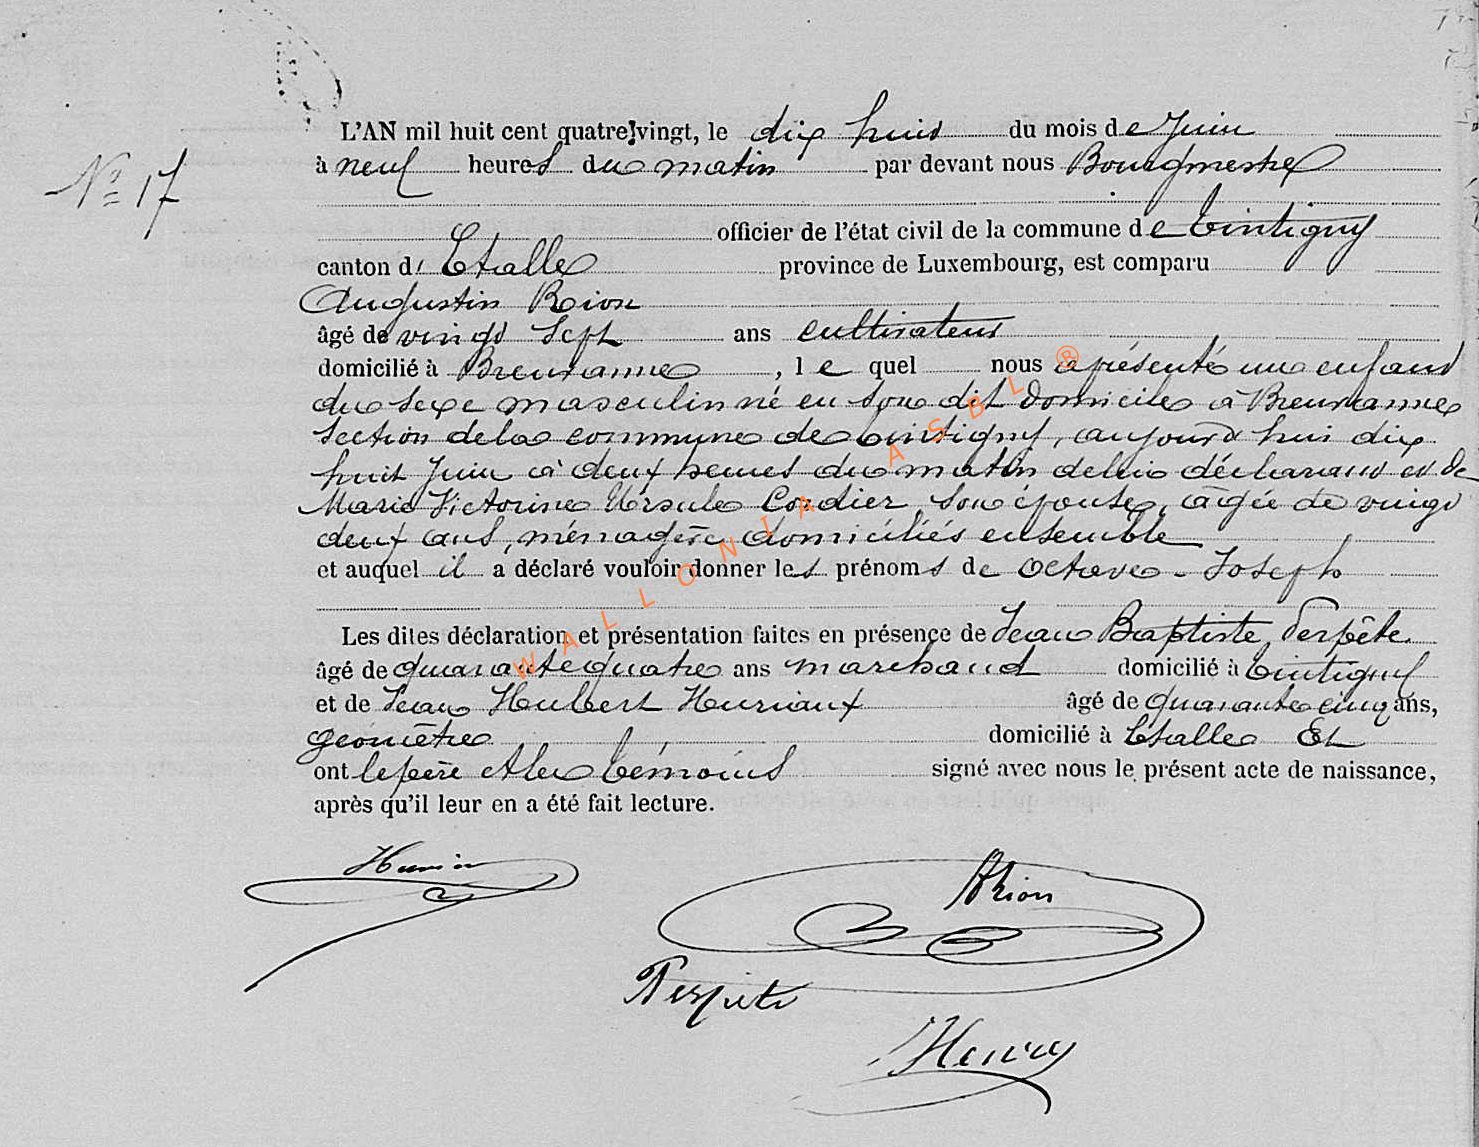 L'AN mil huit cent quatre-vingt, le dix huit du mois de Juin
à neuf heures du matin par devant nous Bourgmestre
N° 17
officier de l'état civil de la commune de Tintigny
canton d' Etalle province de Luxembourg, est comparu
Augustin Rion
âgé de vingt sept ans cultivateur
domicilié à Breuvanne, le quel nous a présenté un enfant
du sexe masculin né en son dit domicile à Breuvanne
section de la commune de Tintigny, aujourd'hui dix
huit Juin à deux heures du matin de lui déclarant et de
Marie Victorine Ursule Cordier, son épouse, agée de vingt
deux ans, ménagère domiciliés ensemble
et auquel il a déclaré vouloir donner les prénoms de Octave-Joseph
Les dites déclaration et présentation faites en présence de Jean Baptiste Perpète
âgé de quarante quatre ans marchand domicilié à Tintigny
et de Jean Hubert âgé de quarante cinq ans,
géomètre domicilié à Etalle Et
ont le père et les témoins signé avec nous le présent acte de naissance,
après qu'il leur en a été fait lecture.
ARion
Perpète
WALLONIA ASBL ®